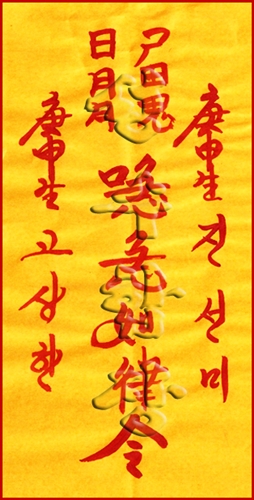 庚申生 선미
尸田鬼
日月
唵急如律令
庚申生 고상한